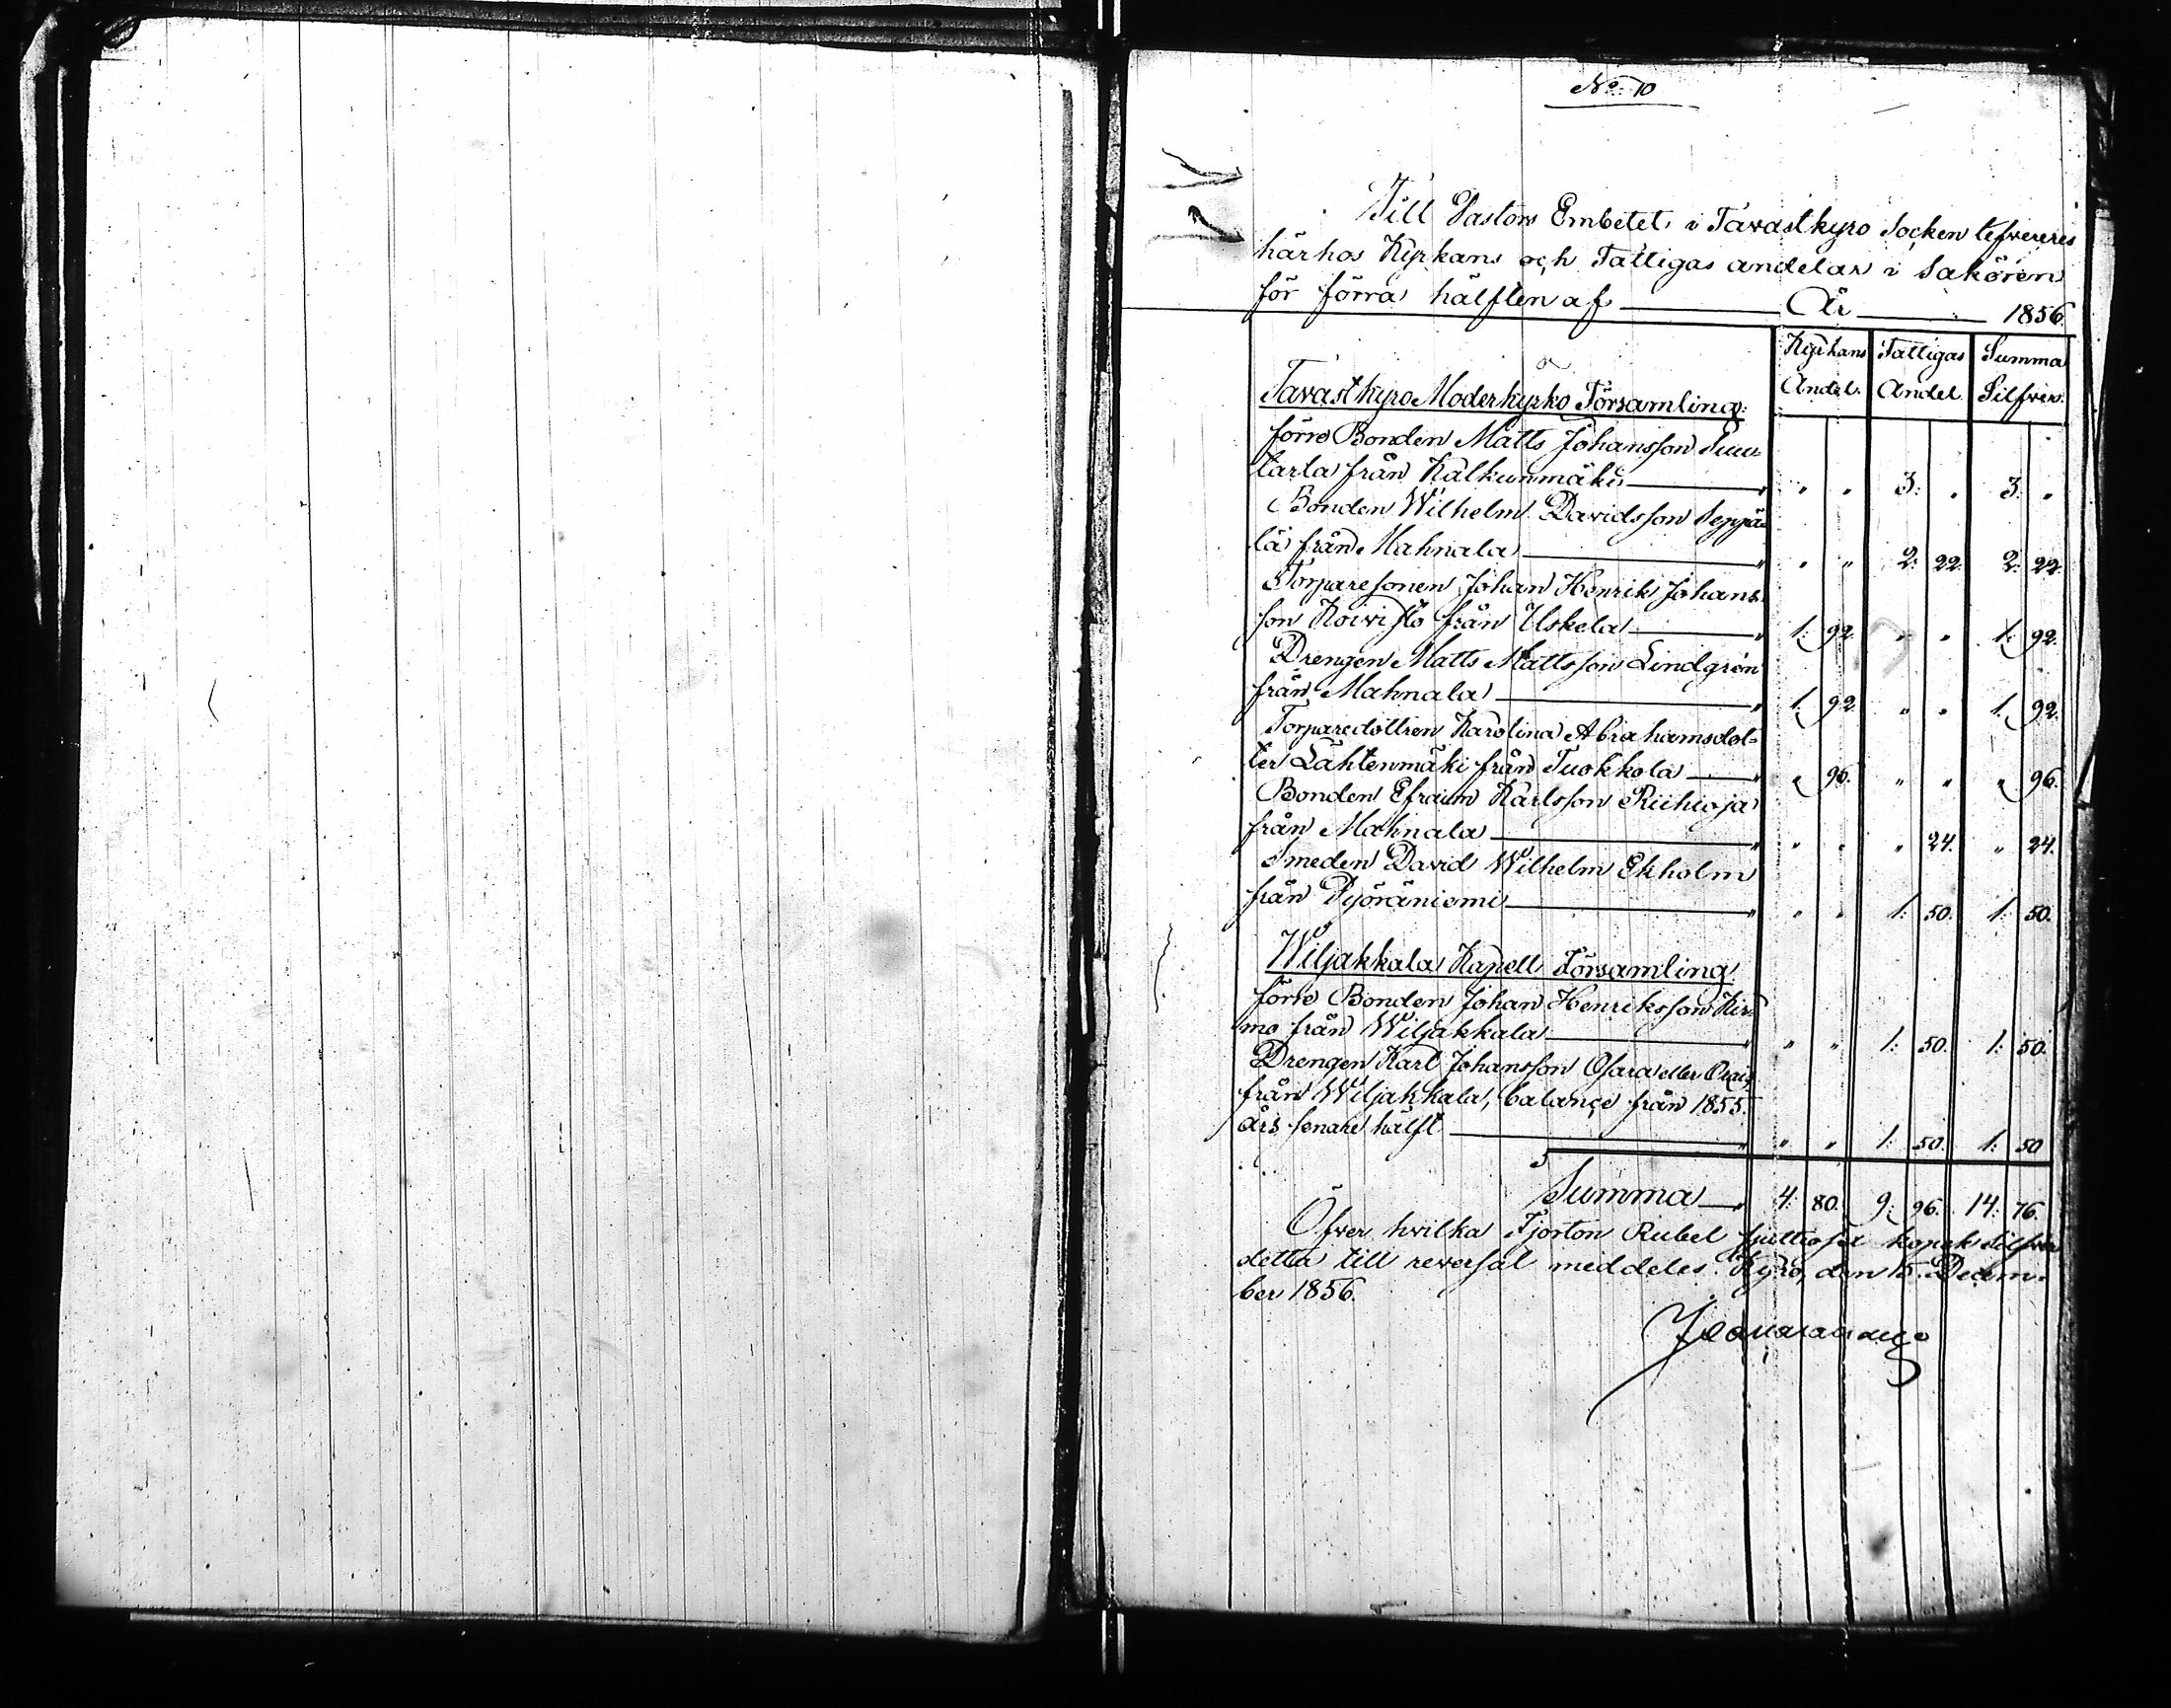 No 10
Till Pastors Embetet i Tavastkyro Socken lefvereres
härhos Kyrkans och Fattigas andelar i Sakören
för förra hälften af År 1856.
Kyrkans Andel. Fattigas Andel. Summa Silfver.
Tavastkyro Moderkyrko Församling:
förre Bonden Matts Johansson Suu-
tarla från Kalkunmäki " " " 3: " 3: "
Bonden Wilhelm Davidsson Seppä-
lä från Mahnala " " " 2: 22. 2: 22.
Torparesonen Johan Henrik Johans-
son Koivisto från Uskela " 1: 92. " " 1: 92.
Drengen Matts Mattsson Lindgrén
från Mahnala " 1. 92. " " 1. 92.
Torparedottren Karolina Abrahamsdot-
ter Lähtenmäki från Tuokkola " " 96. " " " 96.
Bonden Efraim Karlsson Riihioja
från Mahnala " " " " 24. " 24.
Smeden David Wilhelm Ekholm
från Pyöräniemi " " " 1: 50. 1: 50.
Wiljakkala Kapell Församling
förre Bonden Johan Henriksson
från Wiljakkala " " " 1: 50. 1: 50.
Drengen Karl Johansson Osara eller
från Wiljakkala, balance från 1855
års senare hälft " " " 1: 50. 1: 50
Summa " 4: 80. 9: 96. 14: 76.
Öfver hvilka Fjorton Rubel sjuttiosex kopek Silfver
detta till reversal meddeles. Kyro, den 15. Decem-
ber 1856.